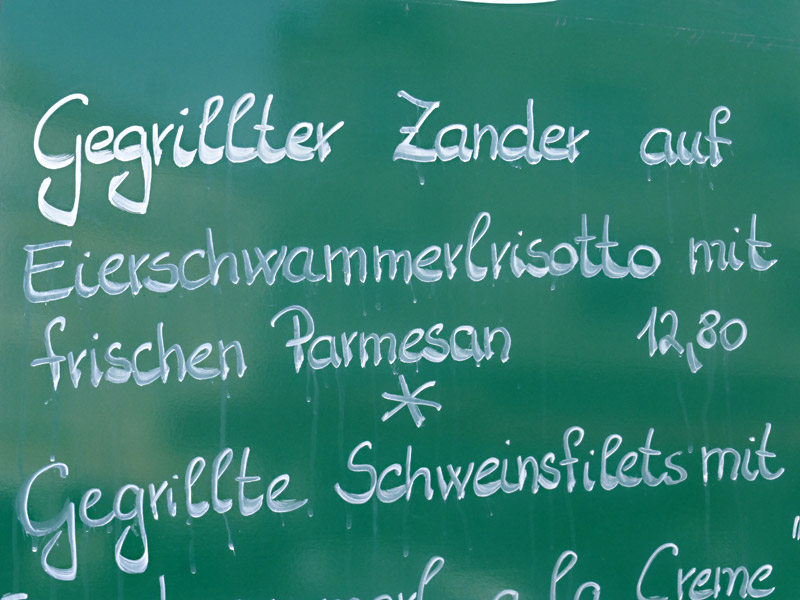 Gegrillter Zander auf
Eierschwammerlrisotto mit
frischen Parmesan 12,80
*
Gegrillte Schweinsfilets mit
a la Creme